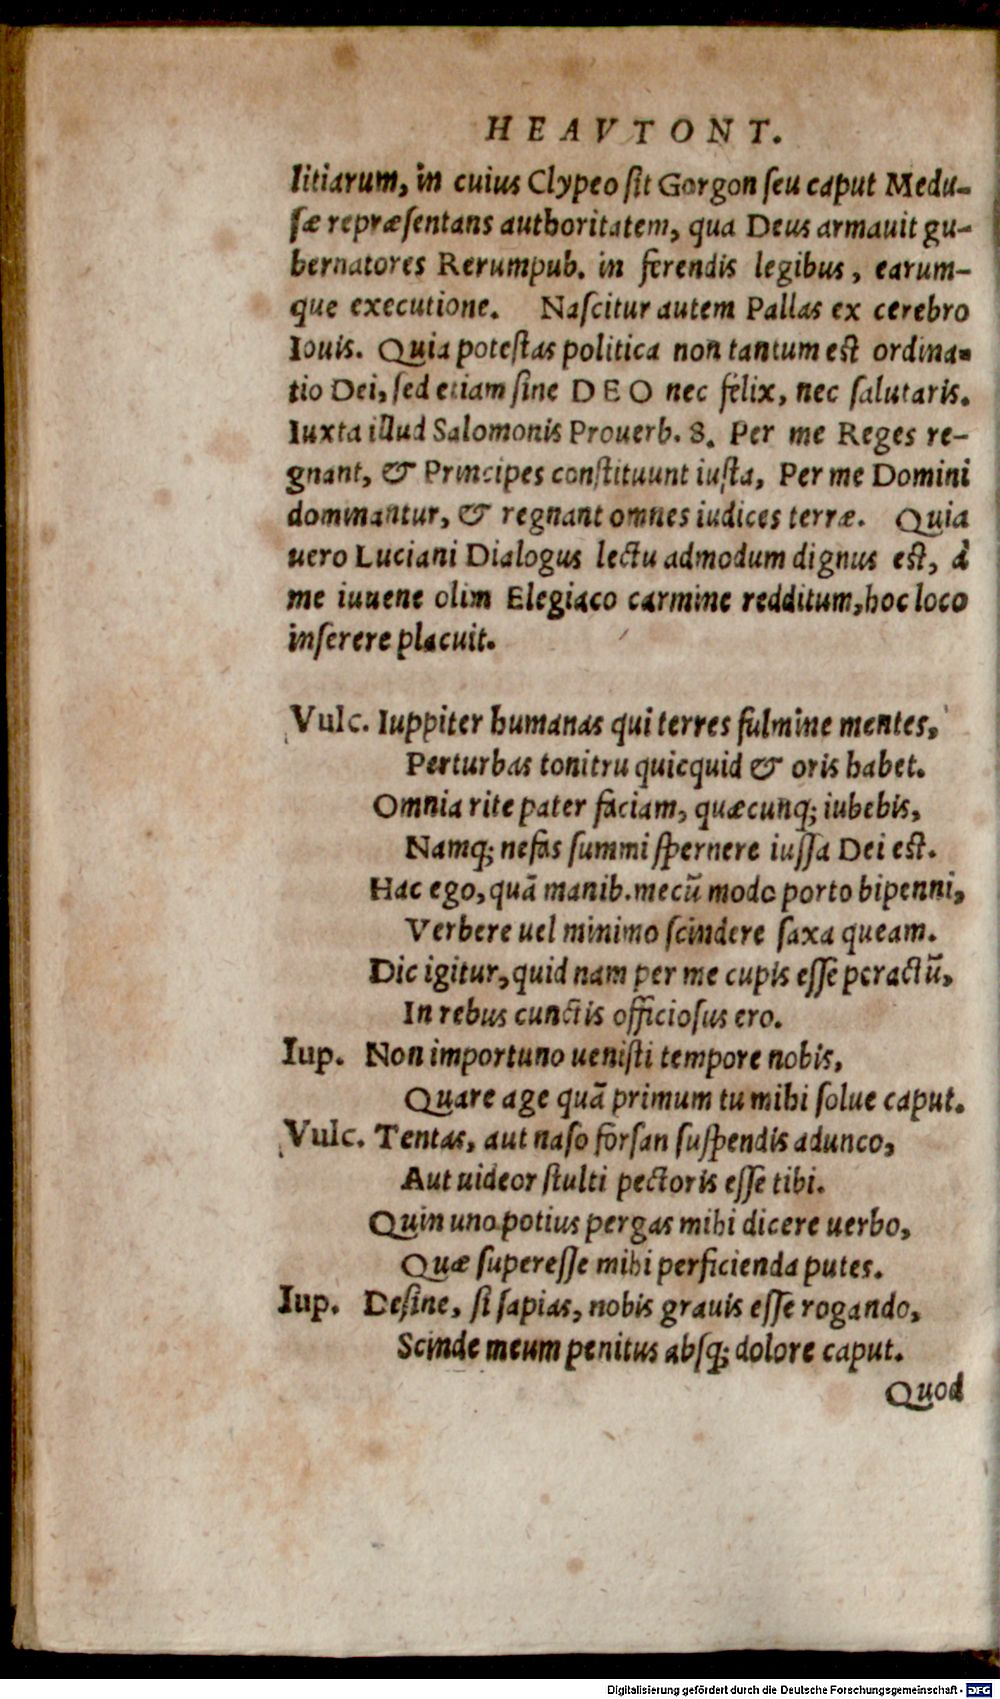 HEAVTONT.
litiarum, in cuius Clypeo ſit Gorgon ſeu caput Medu-
ſæ repræſentans authoritatem, qua Deus armauit gu-
bernatores Rerumpub. in ferendis legibus, earum-
que executione. Naſcitur autem Pallas ex cerebro
Iouis. Quia poteſtas politica non tantum eſt ordina-
tio Dei, ſed etiam ſine DEO nec felix, nec ſalutaris.
Iuxta illud Salomonis Prouerb. 8. Per me Reges re-
gnant, & Principes conſtituunt iuſta, Per me Domini
dominantur, & regnant omnes iudices terræ. Quia
uero Luciani Dialogus lectu admodum dignus eſt, à
me iuuene olim Elegiaco carmine redditum, hoc loco
inſerere placuit.
Vulc. Iuppiter humanas qui terres fulmine mentes,
Perturbas tonitru quicquid & oris habet.
Omnia rite pater faciam, quæcunq; iubebis,
Namq; nefas ſummi ſpernere iuſſa Dei eſt.
Hac ego, quā manib. mecū modo porto bipenni,
Verbere uel minimo ſcindere ſaxa queam.
Dic igitur, quid nam per me cupis eſſe peractū,
In rebus cunctis officioſus ero.
Iup. Non importuno ueniſti tempore nobis,
Quare age quā primum tu mihi ſolue caput.
Vulc. Tentas, aut naſo forſan ſuſpendis adunco,
Aut uideor ſtulti pectoris eſſe tibi.
Quin uno potius pergas mihi dicere uerbo,
Quæ ſupereſſe mihi perficienda putes.
Iup. Deſine, ſi ſapias, nobis grauis eſſe rogando,
Scinde meum penitus abſq; dolore caput.
Quod
Digitalisierung gefördert durch die Deutsche Forschungsgemeinschaft - DFG